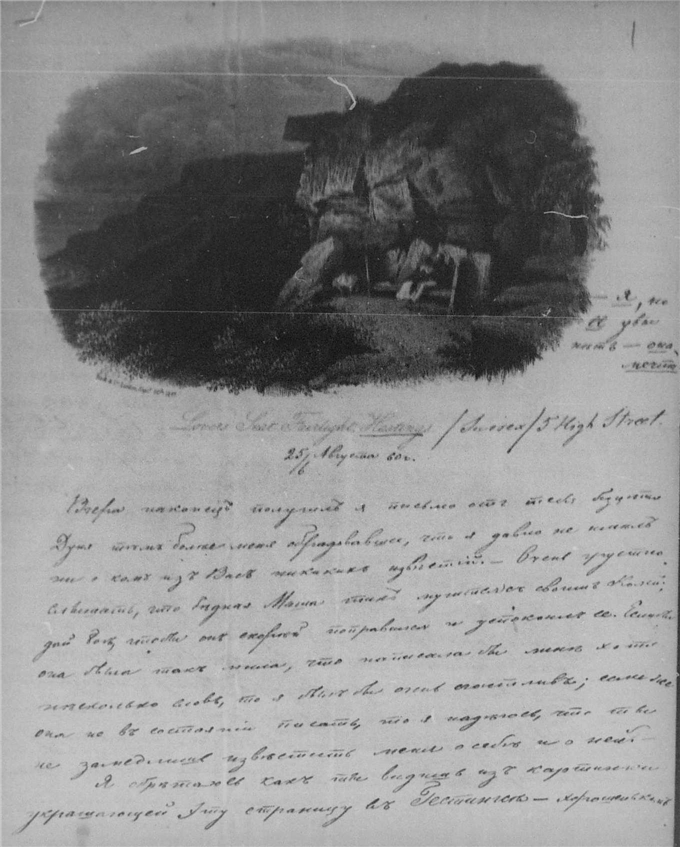 — я, но
ее увы
нитъ — она
мечт
Lovers Seat Fairlight, Hastings /Sussex/ 5 High Street.
25/6 Августа 60 г.
Вчера наконецъ получилъ я письмо отъ тебя
Дуня тѣмъ болѣе меня обрадовавшее, что я давно не имѣлъ
ни о комъ изъ Васъ никакихъ извѣстій. — Очень грустно
слышать, что бѣдная Маша такъ мучится съ своимъ Колей;
дай Богъ, чтобы онъ скорѣй поправился и успокоилъ ее. Если бъ
она была такъ мила, что написала бы мнѣ хотя
нѣсколько словъ, то я былъ бы очень счастливъ; если же
она не въ состояніи писать, то я надѣюсь, что ты
не замедлишь извѣстить меня о себѣ и о ней. —
Я обрѣтаюсь какъ ты видишь изъ картинки
украшающей эту страницу въ Гестингсѣ — хорошенькомъ